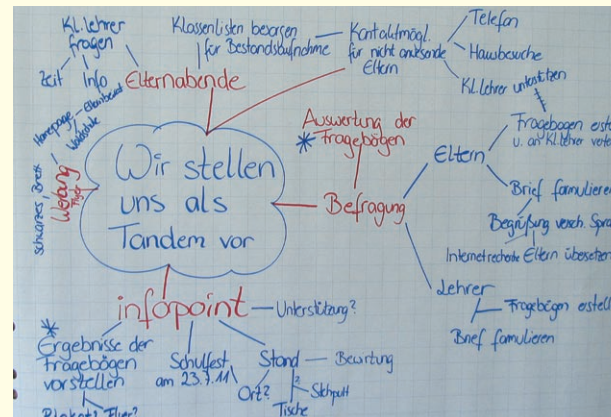 Kl.lehrer
fragen
Zeit
Info
Elternabende
Klassenlisten besorgen
für Bestandsaufnahme
Kontaktmögl.
für nicht anwesende
Eltern
Telefon
Hausbesuche
Kl.lehrer
Homepage
Elternbeirat
schwarzes Brett
Werbung
Flyer
Wir stellen
uns als
Tandem vor
Auswertung der
* Fragebögen
Befragung
Eltern
Fragebogen erste
u. an Kl.lehrer verte
Brief formulieren
Begrüßung versch. Spra
Internetrecherche Eltern übersetzen
Lehrer
Fragebögen erstell
Brief formulieren
infopoint
Unterstützung?
*
Ergebnisse der
Fragebögen
vorstellen
Plakat? Flyer?
Schulfest
am 23.7.11
Stand
Bewirtung
Ort?
Stehpult
Tische